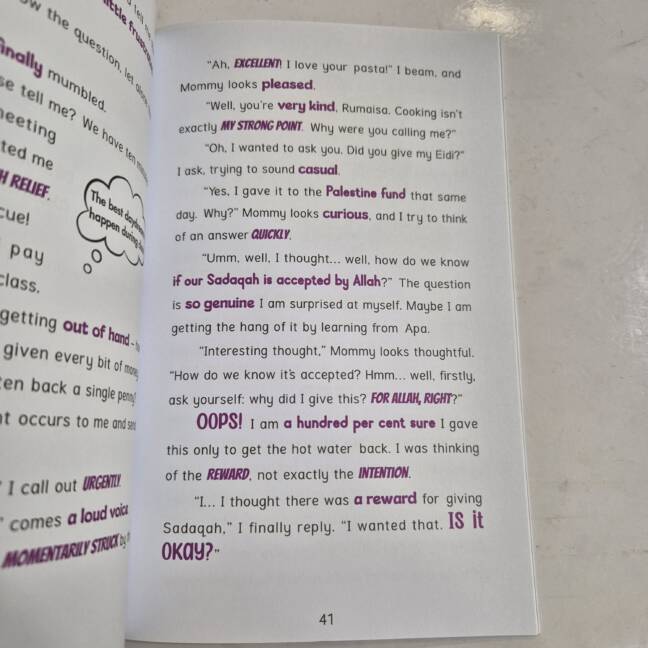 finally mumbled.
se tell me? We have ten
neeting
ted me
H RELIEF.
cue!
pay
class.
getting out of hand –
given every bit of money
ten back a single penny
nt occurs to me and
I call out URGENTLY.
comes a loud voice
MOMENTARILY STRUCK by
The best
happen during
"Ah, EXCELLENT! I love your pasta!" I beam, and
Mommy looks pleased.
"Well, you're very kind, Rumaisa. Cooking isn't
exactly MY STRONG POINT. Why were you calling me?"
"Oh, I wanted to ask you. Did you give my Eidi?"
I ask, trying to sound casual.
"Yes, I gave it to the Palestine fund that same
day. Why?" Mommy looks curious, and I try to think
of an answer QUICKLY.
"Umm, well, I thought... well, how do we know
if our Sadaqah is accepted by Allah?" The question
is so genuine I am surprised at myself. Maybe I am
getting the hang of it by learning from Apa.
"Interesting thought," Mommy looks thoughtful.
"How do we know it's accepted? Hmm... well, firstly,
ask yourself: why did I give this? FOR ALLAH, RIGHT?"
OOPS! I am a hundred per cent sure I gave
this only to get the hot water back. I was thinking
of the REWARD, not exactly the INTENTION.
"I... I thought there was a reward for giving
Sadaqah," I finally reply. "I wanted that. IS it
OKAY?"
41